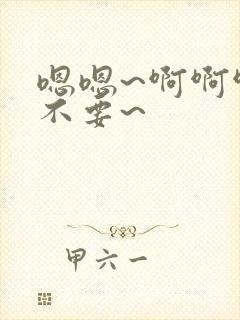 嗯嗯~啊啊
不要~
甲六一